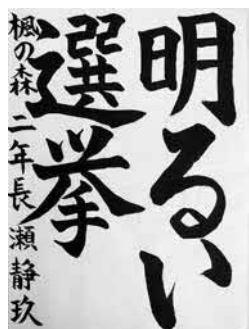 明るい
選挙
楓の森 二年 長瀬静玖